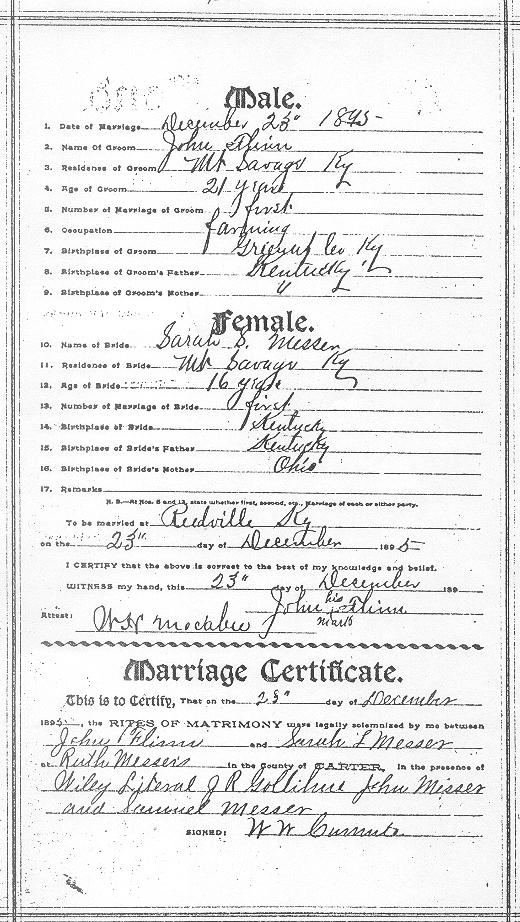 Male.
1. Date of Marriage December 25" 1895
2. Name of Groom John Flinn
3. Residence of Groom Mt Savage Ky
4. Age of Groom 21 years
5. Number of Marriage of Groom first
6. Occupation farming
7. Birthplace of Groom Greenup Co Ky
8. Birthplace of Groom's Father Kentucky
9. Birthplace of Groom's Mother "
Female.
10. Name of Bride Sarah S. Messer
11. Residence of Bride Mt Savage Ky
12. Age of Bride 16 years
13. Number of Marriage of Bride first
14. Birthplace of Bride Kentucky
15. Birthplace of Bride's Father Kentucky
16. Birthplace of Bride's Mother Ohio
17. Remarks
N. B.—At Nos. 5 and 13, state whether first, second, etc., Marriage of each or either party.
To be married at Reedville Ky
on the 25" day of December 1895
I CERTIFY that the above is correct to the best of my knowledge and belief.
WITNESS my hand, this 25" day of December 189
John his Flinn
mark
Attest: W W
Marriage Certificate.
This is to Certify, That on the 25" day of December
1895, the RITES OF MATRIMONY were legally solemnized by me between
John Flinn and Sarah L Messer
at Ruth Messers in the County of CARTER, in the presence of
Wiley Literal J R Gollihue John Messer
and Samuel Messer
SIGNED: W W